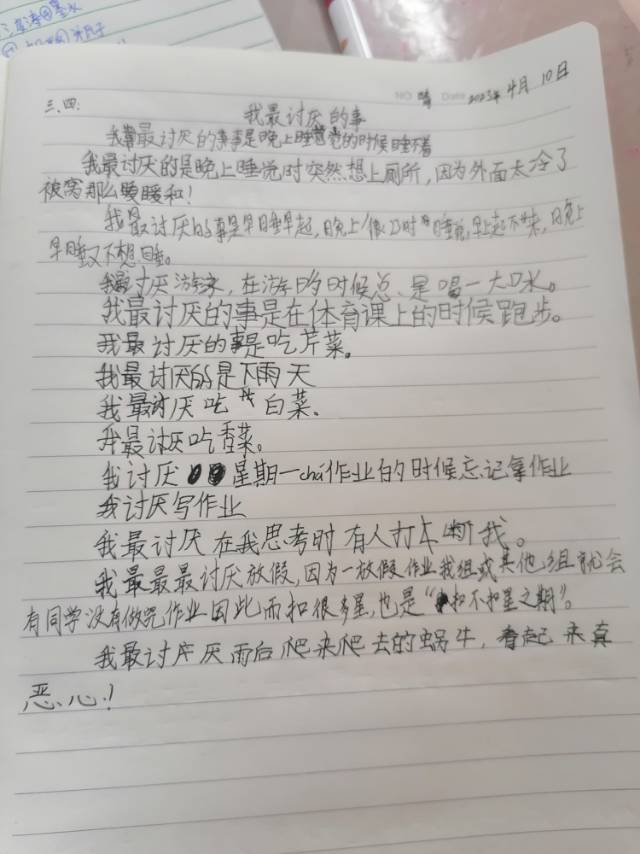 NO 晴 Date 2023年4月10日
三.四:
我最讨厌的事
我最讨厌的事是晚上睡觉的时候睡不着
我最讨厌的是晚上睡觉时突然想上厕所,因为外面太冷了
被窝那么暖和!
我最讨厌的事是早睡早起,晚上很 时 睡觉,早上起不来,晚上
早睡又不想睡。
我最讨厌游泳,在游的时候总是喝一大口水。
我最讨厌的事是在体育课上的时候跑步。
我最讨厌的事是吃芹菜。
我最讨厌的是下雨天
我最讨厌吃 白菜.
我最讨厌吃香菜。
我讨厌 星期一chá作业的时候忘记拿作业
我讨厌写作业
我最讨厌在我思考时有人打断我。
我最最最讨厌放假,因为一放假作业我组或其他组就会
有同学没有做完作业因此而扣很多星,也是“扣不扣星之期”。
我最讨厌雨后爬来爬去的蜗牛,看起来真
恶心!